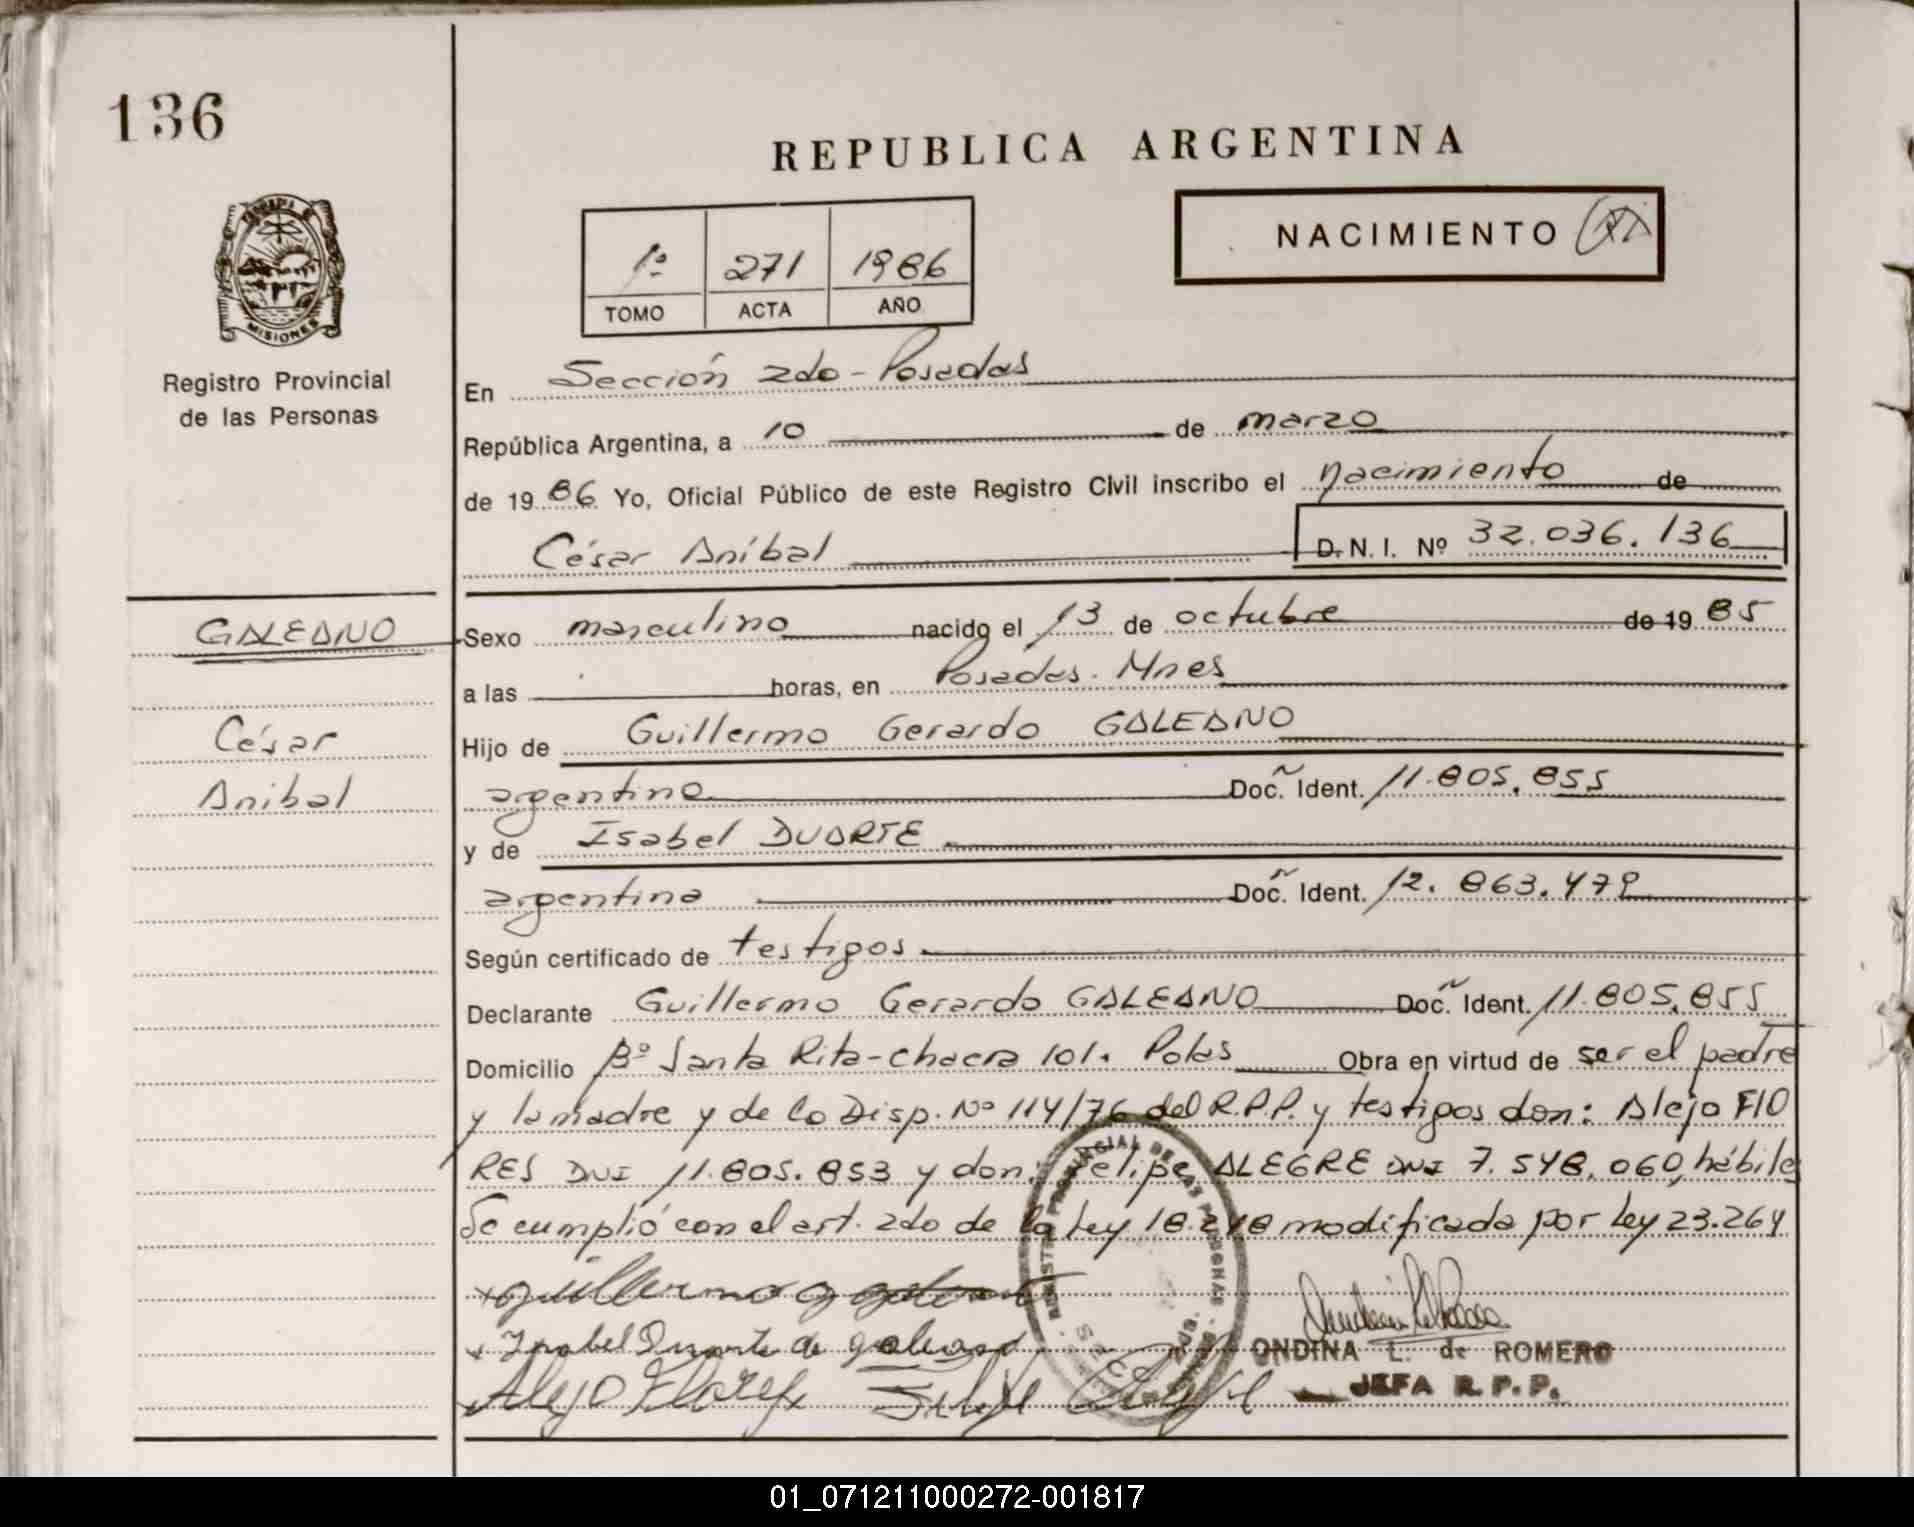 136
REPUBLICA ARGENTINA
PROVINCIA DE
MISIONES
Registro Provincial
de las Personas
1º 271 1986
TOMO ACTA AÑO
NACIMIENTO
En Sección 2do - Posadas
República Argentina, a 10 de marzo
de 1986 Yo, Oficial Público de este Registro Civil inscribo el nacimiento de
César Aníbal D.N.I. Nº 32.036.136
GALEANO
César
Anibal
Sexo masculino nacido el 13 de octubre de 1985
a las horas, en Posadas. Mnes
Hijo de Guillermo Gerardo GALEANO
argentino Doc. Ident. 11.805.855
y de Isabel DUARTE
argentina Doc. Ident. 12.863.479
Según certificado de testigos
Declarante Guillermo Gerardo GALEANO Doc. Ident. 11.805.855
Domicilio Bº Santa Rita - chacra 101. Pdas Obra en virtud de ser el padre
y la madre y de la Disp. Nº 114/76 del R.P.P. y testigos don: Alejo FLO
RES DNI 11.805.853 y don: Felipe ALEGRE DNI 7.548.060, hábiles
Se cumplió con el art. 2do de la Ley 18.248 modificada por Ley 23.264
REGISTRO PROVINCIAL DE LAS PERSONAS
SECC. 2da.
x Guillermo G galeano
x Isabel Duarte de galeano
Alejo Flores Felipe
ONDINA L. de ROMERO
JEFA R.P.P.
01_071211000272-001817